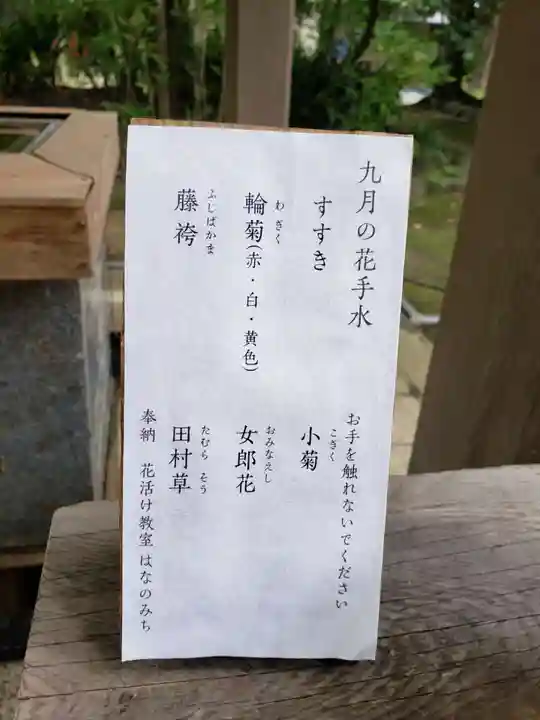 九月の花手水
お手を触れないでください
すすき
小菊
こぎく
輪菊(赤・白・黄色)
わぎく
女郎花
おみなえし
藤袴
ふじばかま
田村草
たむら そう
奉納 花活け教室 はなのみち